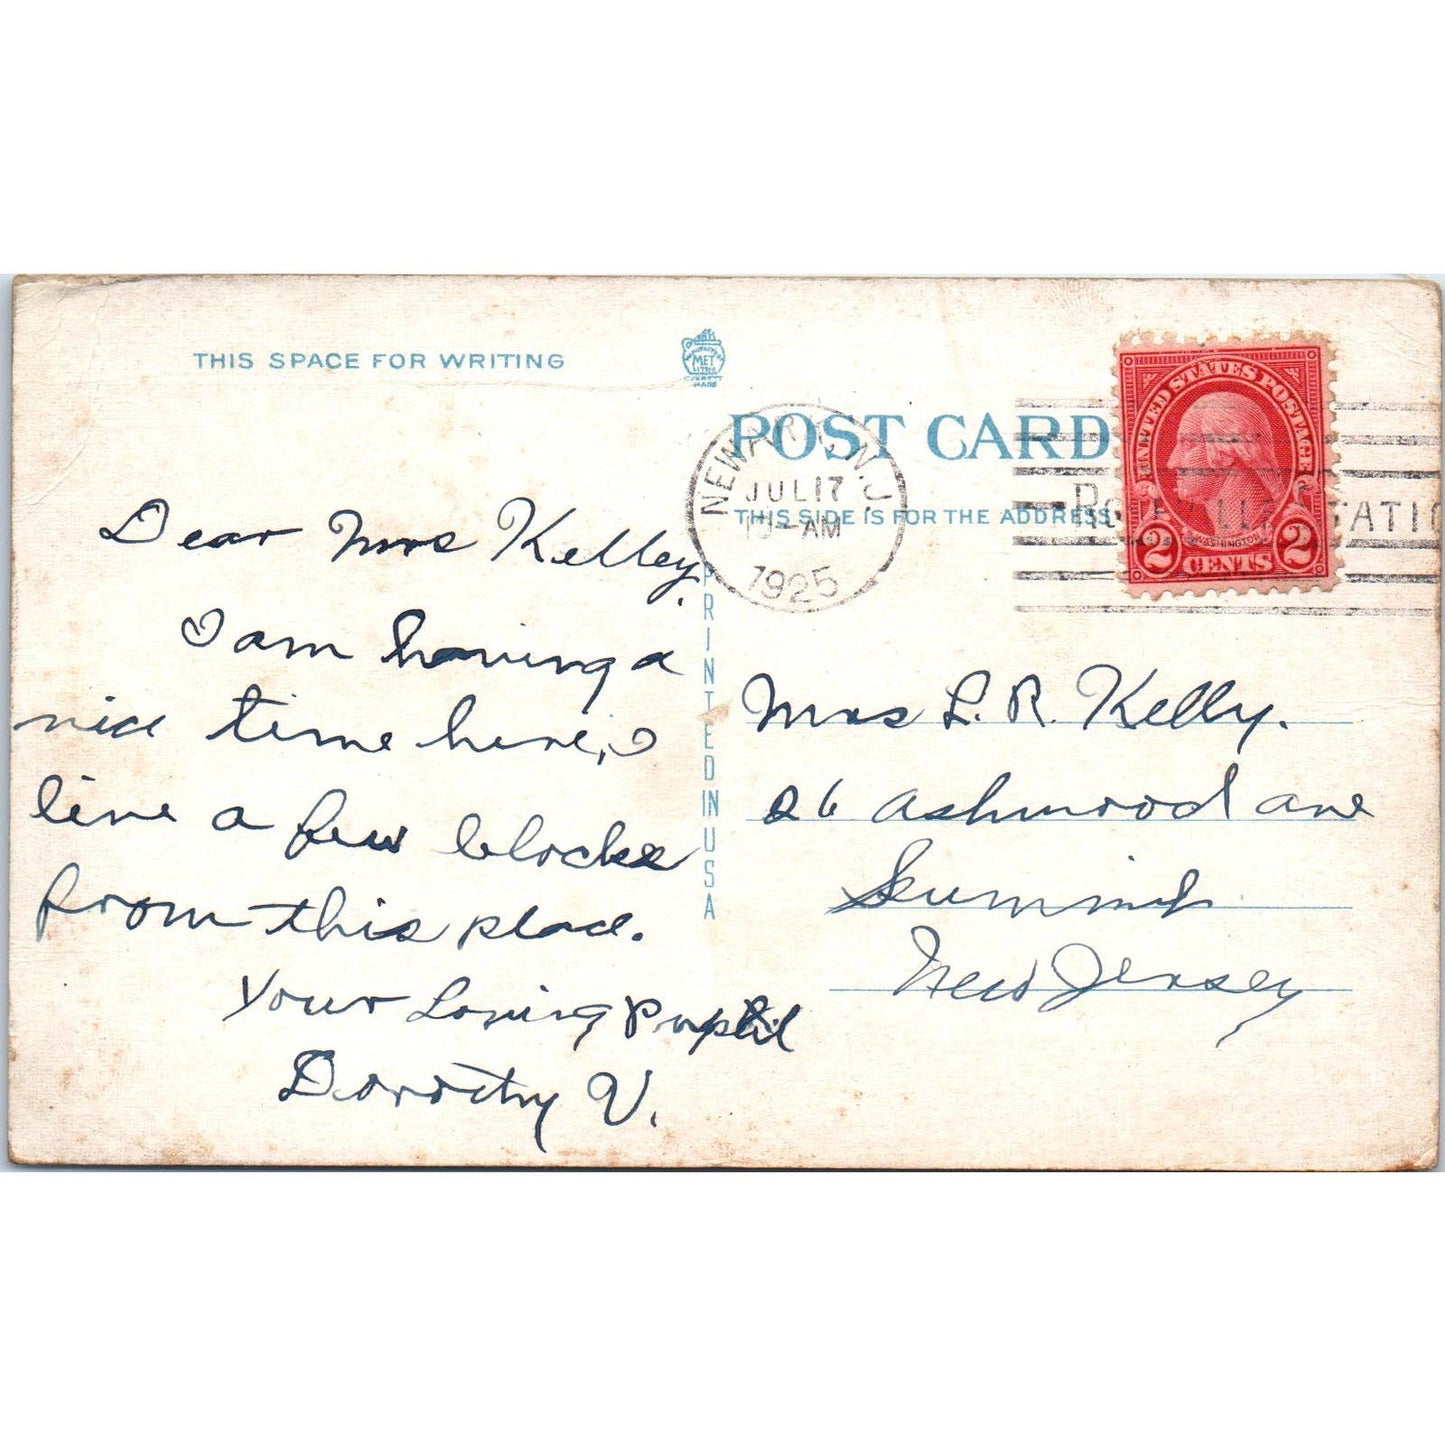 THIS SPACE FOR WRITING
MET
EVERETT
MASS
POST CARD
THIS SIDE IS FOR THE ADDRESS
NEWARK, N.J.
JUL 17
AM
1925
STATIO
UNITED STATES POSTAGE
WASHINGTON
2 CENTS 2
PRINTED IN USA
Dear Mrs Kelley,
I am having a
nice time here, I
live a few blocks
from this place.
Your Loving Pupil
Dorothy V.
Mrs L. R. Kelly.
26 Ashwood ave
Summit
New Jersey